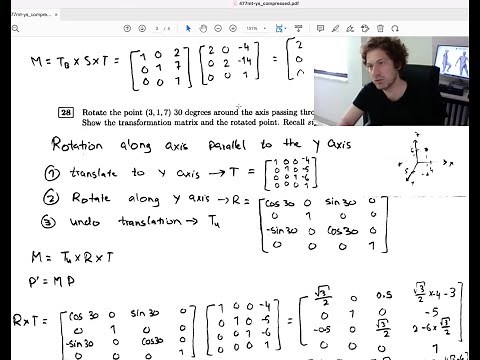 477mt-ys_compressed.pdf
477mt-ys_compressed.pdf
151%
M = T₀ × S × T = [1 0 2; 0 1 7; 0 0 1] [2 0 -4; 0 2 -14; 0 0 1] = [2
0
28 Rotate the point (3, 1, 7) 30 degrees around the axis passing
Show the transformation matrix and the rotated point. Recall
Rotation along axis parallel to the y axis
① translate to y axis → T = [1 0 0 -4; 0 1 0 -5; 0 0 1 -6; 0 0 0 1]
② Rotate along y axis → R = [cos 30 0 sin 30 0; 0 1 0 0; -sin 30 0 cos 30 0; 0 0 0 1]
③ undo translation → Tu
M = Tu × R × T
P' = M P
R × T = [cos 30 0 sin 30 0; 0 1 0 0; -sin 30 0 cos 30 0; 0 0 0 1] [1 0 0 -4; 0 1 0 -5; 0 0 1 -6; 0 0 0 1] = [√3/2 0 0.5 √3/2 x -4 - 3; 0 1 0 -5; -0.5 0 √3/2 2 - 6 x √3/2; 0 0 0 1]